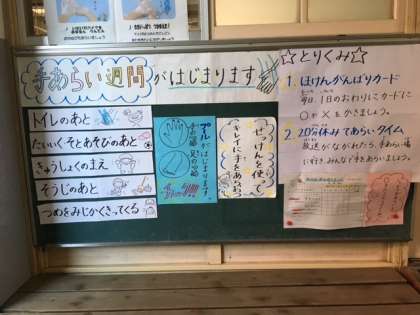 手あらい週間がはじまります
トイレのあと
たいいく、そとあそびのあと
きゅうしょくのまえ
そうじのあと
つめをみじかくきってくる
プールがはじまります。
せっけんを使って
キレイに手をあらおう
☆とりくみ☆
1. ほけんがんばりカード
毎日、1日のおわりにカードに
○か×をかきましょう。
2. 20分休み てあらいタイム
放送がながれたら、手あらい場
に行き、みんなで手をあらいましょう。